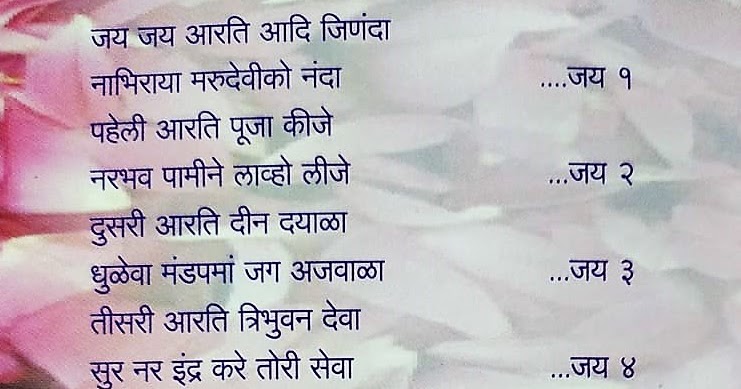 जय जय आरति आदि जिणंदा
नाभिराया मरुदेवीको नंदा ....जय १
पहेली आरति पूजा कीजे
नरभव पामीने लाव्हो लीजे ...जय २
दुसरी आरति दीन दयाळा
धुळेवा मंडपमां जग अजवाळा ...जय ३
तीसरी आरति त्रिभुवन देवा
सुर नर इंद्र करे तोरी सेवा ...जय ४